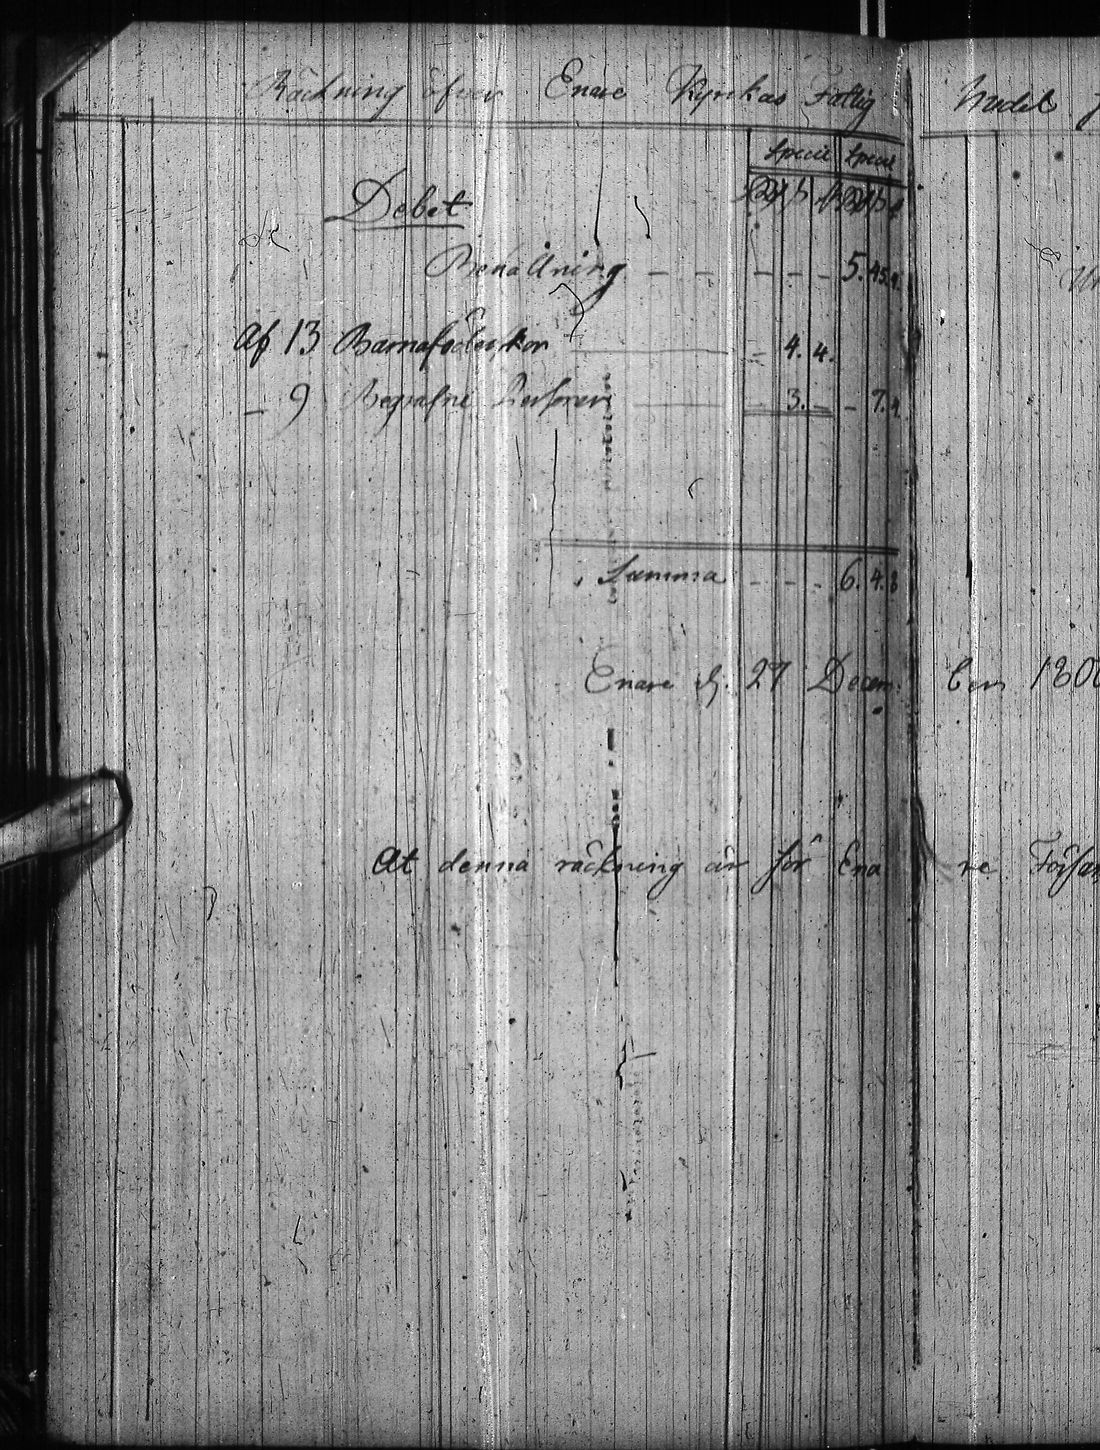 Räckning öfver Enare Kyrkas Fattig Medel
Specie Specie
Debet
Behållning - - - - - 5. 45. 4.
Af 13 Barnaföderskor - 4. 4.
- 9 Begrafne Personer - 3. - - 7. 4.
Summa - - - 6. 4. 8
Enare d. 27 Decem ber 180
At denna räckning är för Ena re Försam